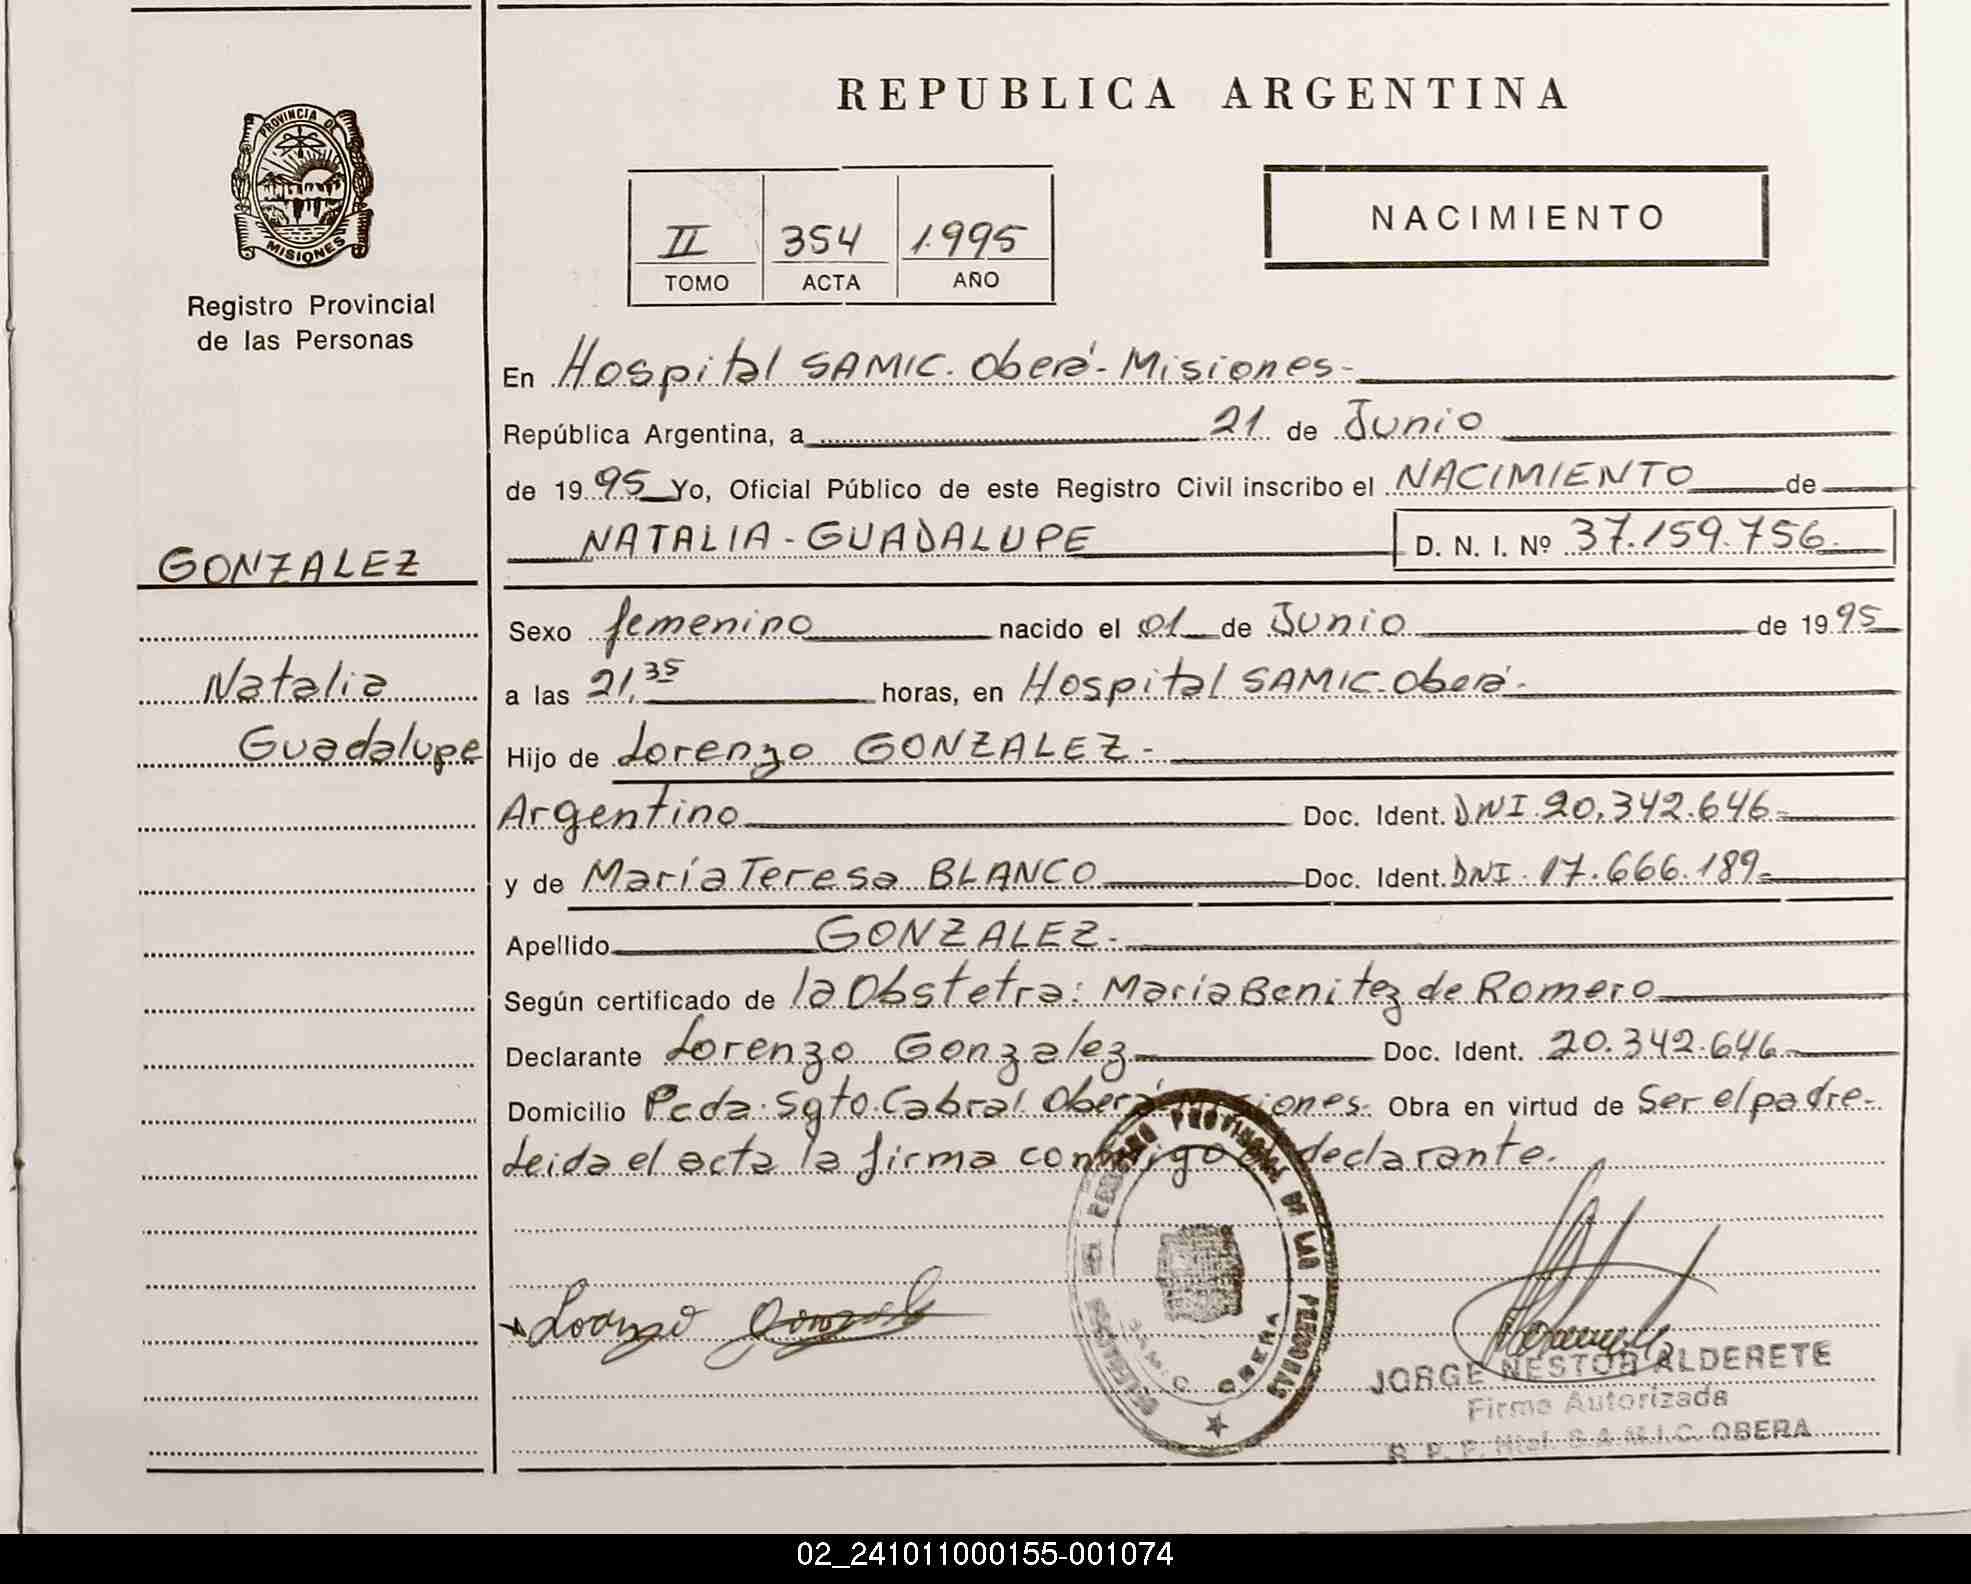 REPUBLICA ARGENTINA
PROVINCIA DE
MISIONES
Registro Provincial
de las Personas
II 354 1.995
TOMO ACTA AÑO
NACIMIENTO
En Hospital SAMIC. Oberá - Misiones -
República Argentina, a 21 de Junio
de 19 95 Yo, Oficial Público de este Registro Civil inscribo el NACIMIENTO de
GONZALEZ
NATALIA - GUADALUPE D. N. I. Nº 37.159.756.
Sexo femenino nacido el 01 de Junio de 19 95
Natalia
Guadalupe
a las 21,35 horas, en Hospital SAMIC - Oberá -
Hijo de Lorenzo GONZALEZ -
Argentino Doc. Ident. DNI. 20.342.646 -
y de María Teresa BLANCO Doc. Ident. DNI. 17.666.189 -
Apellido GONZALEZ -
Según certificado de la Obstetra: María Benitez de Romero
Declarante Lorenzo Gonzalez Doc. Ident. 20.342.646 -
Domicilio Pcda. Sgto. Cabral Oberá Misiones. Obra en virtud de Ser el padre -
Leida el acta la firma conmigo el declarante.
REGISTRO PROVINCIAL DE LAS PERSONAS
OBERA
Lorenzo Gonzalez
JORGE NESTOR ALDERETE
Firma Autorizada
R. P. P. Htal. S.A.M.I.C. OBERA
02_241011000155-001074